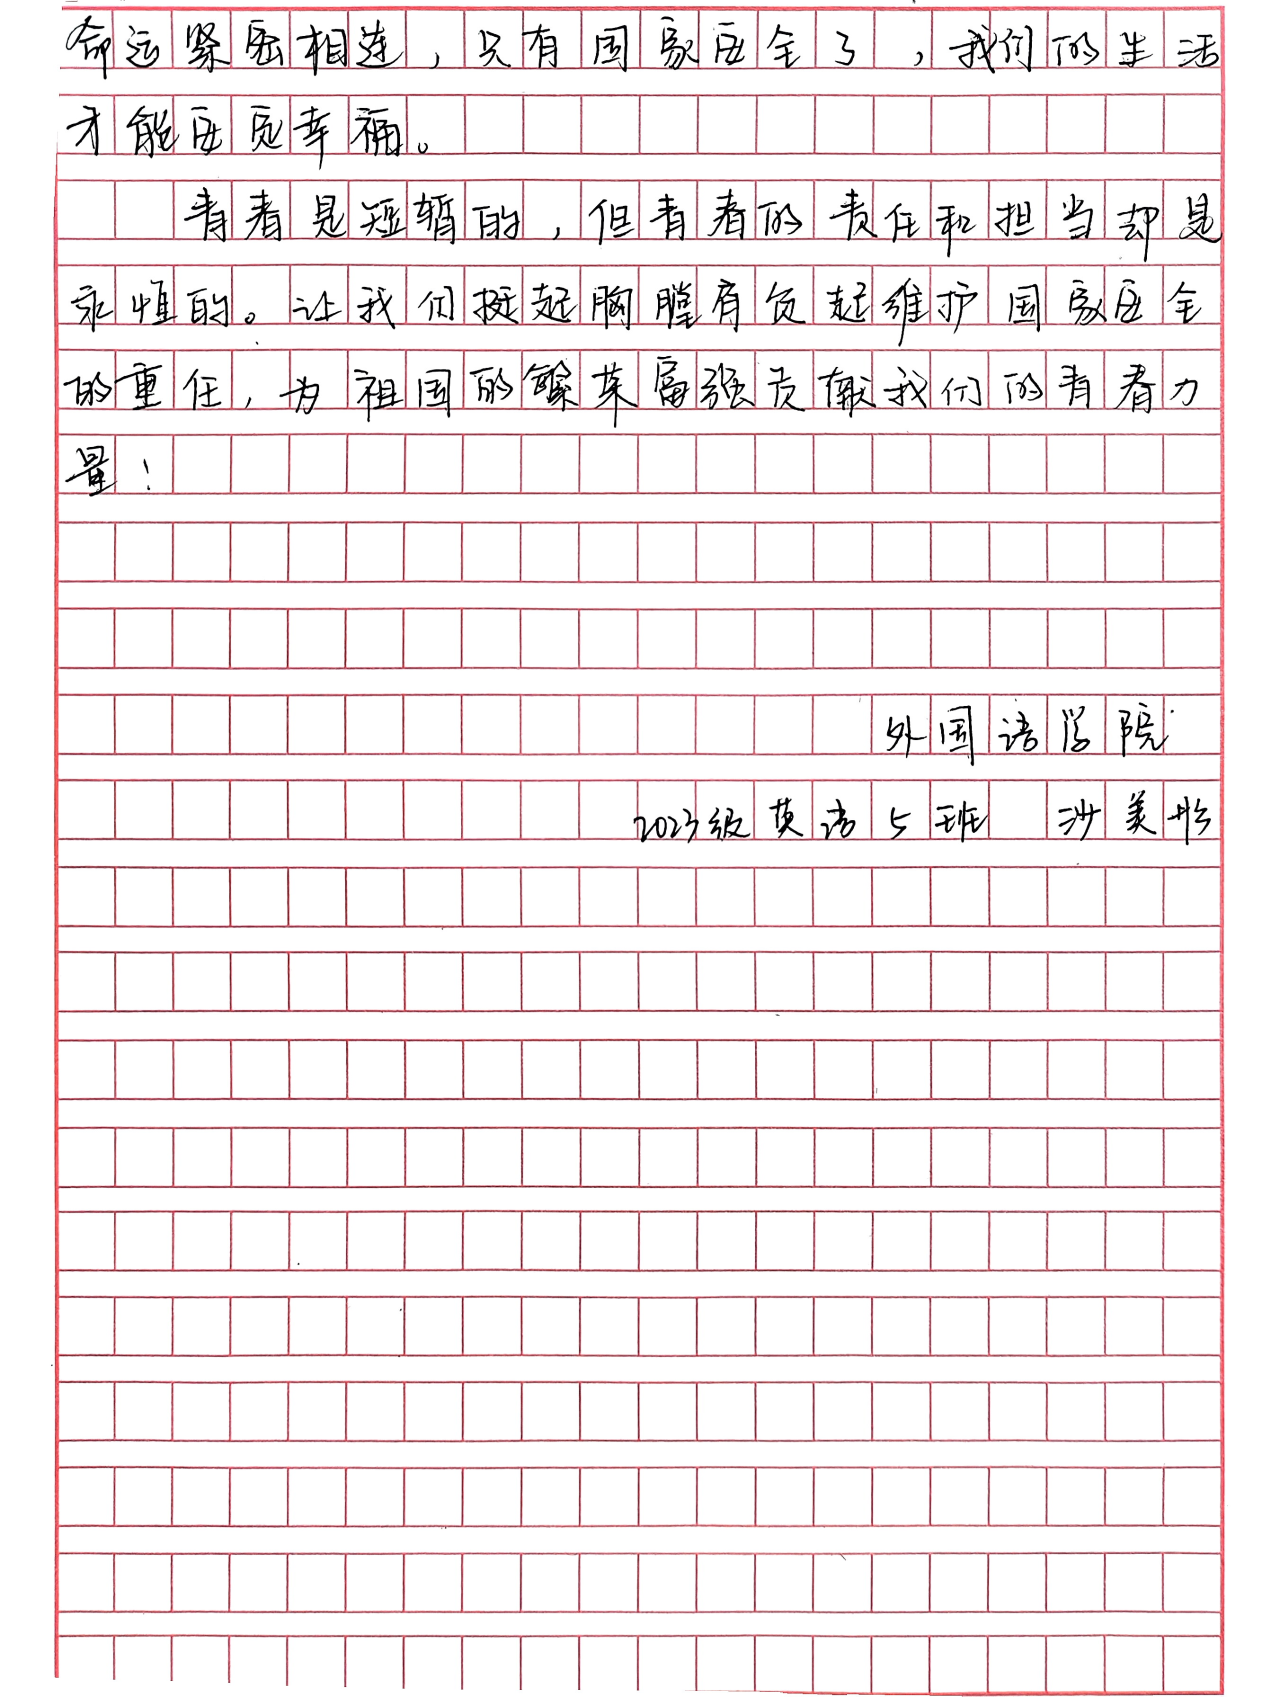 命运紧密相连，只有国家安全了，我们的生活
才能安宽幸福。
青春是短暂的，但青春的责任和担当却是
永恒的。让我们挺起胸膛肩负起维护国家安全
的重任，为祖国的繁荣富强贡献我们的青春力
量！
外国语学院
2023级英语5班 沙美彤